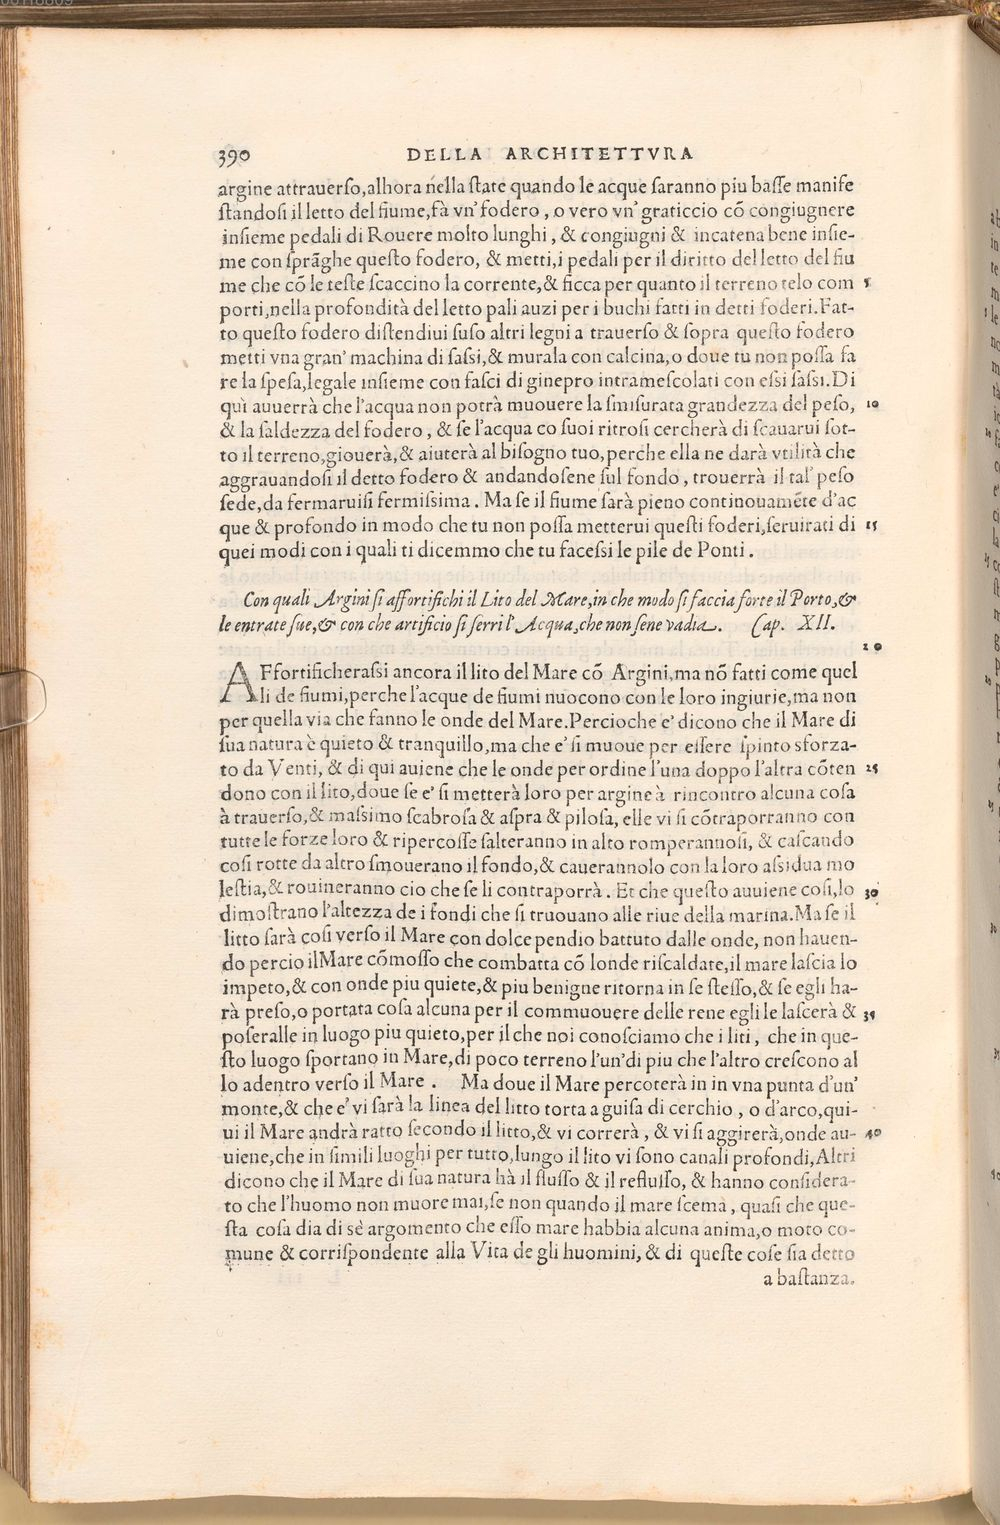 390 DELLA ARCHITETTVRA
argine attrauerſo,alhora nella ſtate quando le acque ſaranno piu baſſe manife
ſtandoſi il letto del fiume,fà vn' fodero , o vero vn' graticcio cō congiugnere
inſieme pedali di Rouere molto lunghi , & congiugni & incatena bene inſie-
me con ſprãghe queſto fodero, & metti,i pedali per il diritto del letto del fiu
me che cō le teſte ſcaccino la corrente,& ficca per quanto il terreno telo com 5
porti,nella profondità del letto pali auzi per i buchi fatti in detti foderi.Fat-
to queſto fodero diſtendiui ſuſo altri legni a trauerſo & ſopra queſto fodero
metti vna gran' machina di ſaſsi,& murala con calcina,o doue tu non poſſa fa
re la ſpeſa,legale inſieme con faſci di ginepro intrameſcolati con eſsi ſaſsi.Di
quì auuerrà che l'acqua non potrà muouere la ſmiſurata grandezza del peſo, 10
& la ſaldezza del fodero , & ſe l'acqua co ſuoi ritroſi cercherà di ſcauarui ſot-
to il terreno,giouerà,& aiuterà al biſogno tuo,perche ella ne darà vtilità che
aggrauandoſi il detto fodero & andandoſene ſul fondo , trouerrà il tal' peſo
ſede,da fermaruiſi fermiſsima . Ma ſe il fiume ſarà pieno continouamēte d'ac
que & profondo in modo che tu non poſſa metterui queſti foderi,ſeruirati di 15
quei modi con i quali ti dicemmo che tu faceſsi le pile de Ponti .
Con quali Argini ſi affortifichi il Lito del Mare,in che modo ſi faccia forte il Porto,&
le entrate ſue,& con che artificio ſi ſerri l' Acqua,che non ſene vadia. Cap. XII.
20
AFfortificheraſsi ancora il lito del Mare cō Argini,ma nō fatti come quel
li de fiumi,perche l'acque de fiumi nuocono con le loro ingiurie,ma non
per quella via che fanno le onde del Mare.Percioche e' dicono che il Mare di
ſua natura è quieto & tranquillo,ma che e' ſi muoue per eſſere ſpinto sforza-
to da Venti, & di qui auiene che le onde per ordine l'una doppo l'altra cōten 25
dono con il lito,doue ſe e' ſi metterà loro per argine à rincontro alcuna coſa
à trauerſo,& maſsimo ſcabroſa & aſpra & piloſa, elle vi ſi cōtraporranno con
tutte le forze loro & ripercoſſe ſalteranno in alto romperannoſi, & caſcando
coſi rotte da altro ſmouerano il fondo,& cauerannolo con la loro aſsidua mo
leſtia,& rouineranno cio che ſe li contraporrà . Et che queſto auuiene coſi,lo 30
dimoſtrano l'altezza de i fondi che ſi truouano alle riue della marina.Ma ſe il
litto ſarà coſi verſo il Mare con dolce pendio battuto dalle onde, non hauen-
do percio ilMare cōmoſſo che combatta cō londe riſcaldate,il mare laſcia lo
impeto,& con onde piu quiete,& piu benigne ritorna in ſe ſteſſo,& ſe egli ha-
rà preſo,o portata coſa alcuna per il commuouere delle rene egli le laſcerà & 35
poſeralle in luogo piu quieto,per il che noi conoſciamo che i liti , che in que-
ſto luogo ſportano in Mare,di poco terreno l'un'di piu che l'altro creſcono al
lo adentro verſo il Mare . Ma doue il Mare percoterà in in vna punta d'un'
monte,& che e' vi ſarà la linea del litto torta a guiſa di cerchio , o d'arco,qui-
ui il Mare andrà ratto ſecondo il litto,& vi correrà , & vi ſi aggirerà,onde au- 40
uiene,che in ſimili luoghi per tutto,lungo il lito vi ſono canali profondi,Altri
dicono che il Mare di ſua natura hà il fluſſo & il refluſſo, & hanno conſidera-
to che l'huomo non muore mai,ſe non quando il mare ſcema , quaſi che que-
ſta coſa dia di sè argomento che eſſo mare habbia alcuna anima,o moto co-
mune & corriſpondente alla Vita de gli huomini, & di queſte coſe ſia detto
a baſtanza.